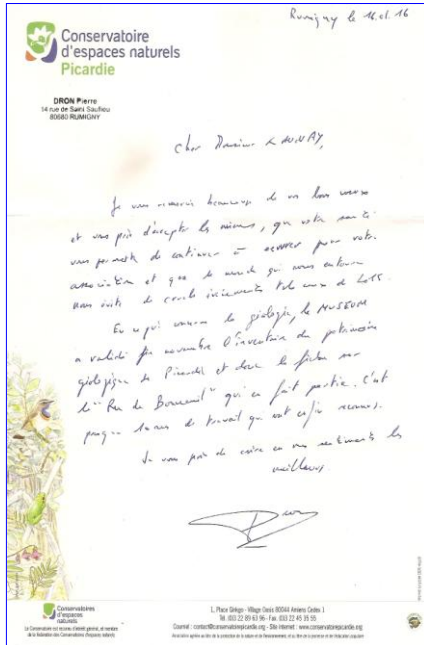 Rumigny le 16.01.16
Conservatoire
d'espaces naturels
Picardie
DRON Pierre
14 rue de Saint Saufieu
80680 RUMIGNY
Cher Monsieur LAUNAY,
Je vous remercie beaucoup de vos bons vœux
et vous prie d'accepter les miens, que votre santé
vous permette de continuer à œuvrer pour votre
association et que le monde qui nous entoure
nous évite de cruels évènements tels ceux de 2015.
En ce qui concerne la géologie, le MUSEUM
a validé fin novembre l'inventaire du patrimoine
géologique de Picardie et donc la fiche sur
le "Ru de" qui en fait partie. C'est
presque 10 ans de travail qui sont enfin reconnus.
Je vous prie de croire en mes sentiments les
meilleurs.
Conservatoire
d'espaces
naturels
1, Place Ginkgo - Village Oasis 80044 Amiens Cedex 1
Tél. 03 22 89 63 96 - Fax. 03 22 45 35 55
Courriel : contact@conservatoirepicardie.org - Site internet : www.conservatoirepicardie.org